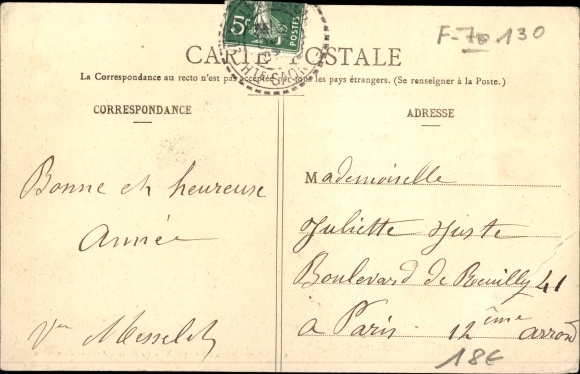 F-70 130
5c
POSTES
CARTE POSTALE
La Correspondance au recto n'est pas acceptée par tous les pays étrangers. (Se renseigner à la Poste.)
CORRESPONDANCE
Bonne et heureuse
année
Vve Messelet
ADRESSE
Mademoiselle
Juliette Juste
Boulevard de Reuilly 41
a Paris. 12ème arrond
18€